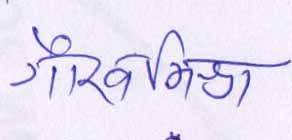 गौरव मिश्रा